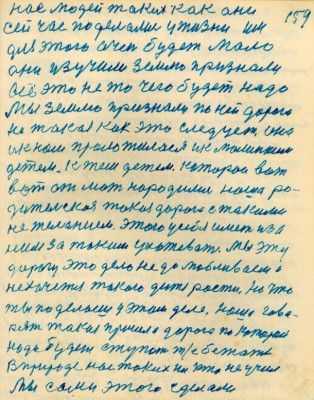 нас людей таких как они 159
сейчас поделали у жизни им
для этого очен будет мало
они изучили землю признали
всё это не то чего будет надо
Мы землю признали по ней дорога
не такая как это следует. она
и к нам проложилася и к маленьким
детем. К тем детем. которой вот
вот от мат народили наша ро-
дительская такая дорога с такими
не желанием. Этого у себя имет и за
ним за таким ухаживать. Мы эту
дорогу это дело недомобливаем и
нехочется такого дитя рости. Но что
ты поделаеш у этом деле. Нашо гово-
рят такая пришла дорога по которой
надо будет ступат т/с бежать
В природе нас таких ни кто не учил
Мы сами этого сделали